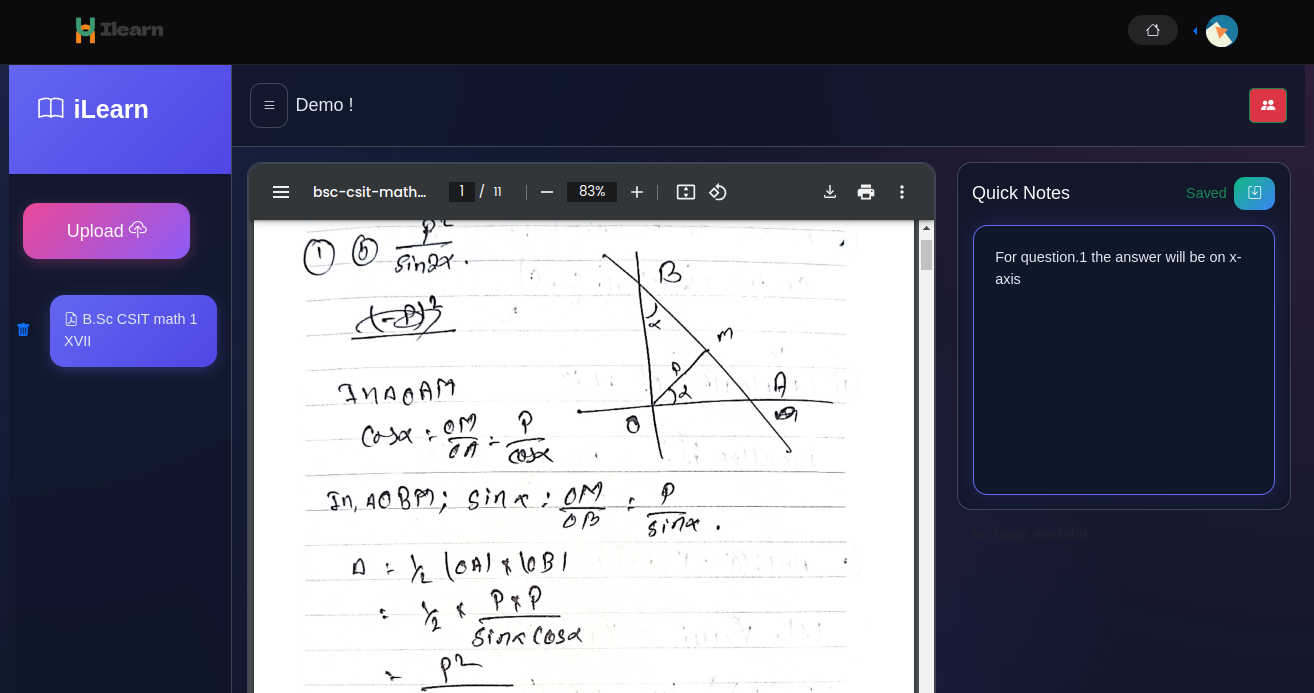 Ilearn
iLearn
Demo !
Upload
B.Sc CSIT math 1
XVII
bsc-csit-math... 1 / 11 83%
① ⓑ P²/sin2α.
(-P)²
B
α
M
P
α
A
O
In Δ OAM
Cosα = OM/OA = P/cosα
In, ΔOBM; sin α = OM/OB = P/sinα .
Δ = 1/2 |OA| * |OB|
= 1/2 * P*P/sinα cosα
= P²
Quick Notes
Saved
For question.1 the answer will be on x-
axis
No notes available